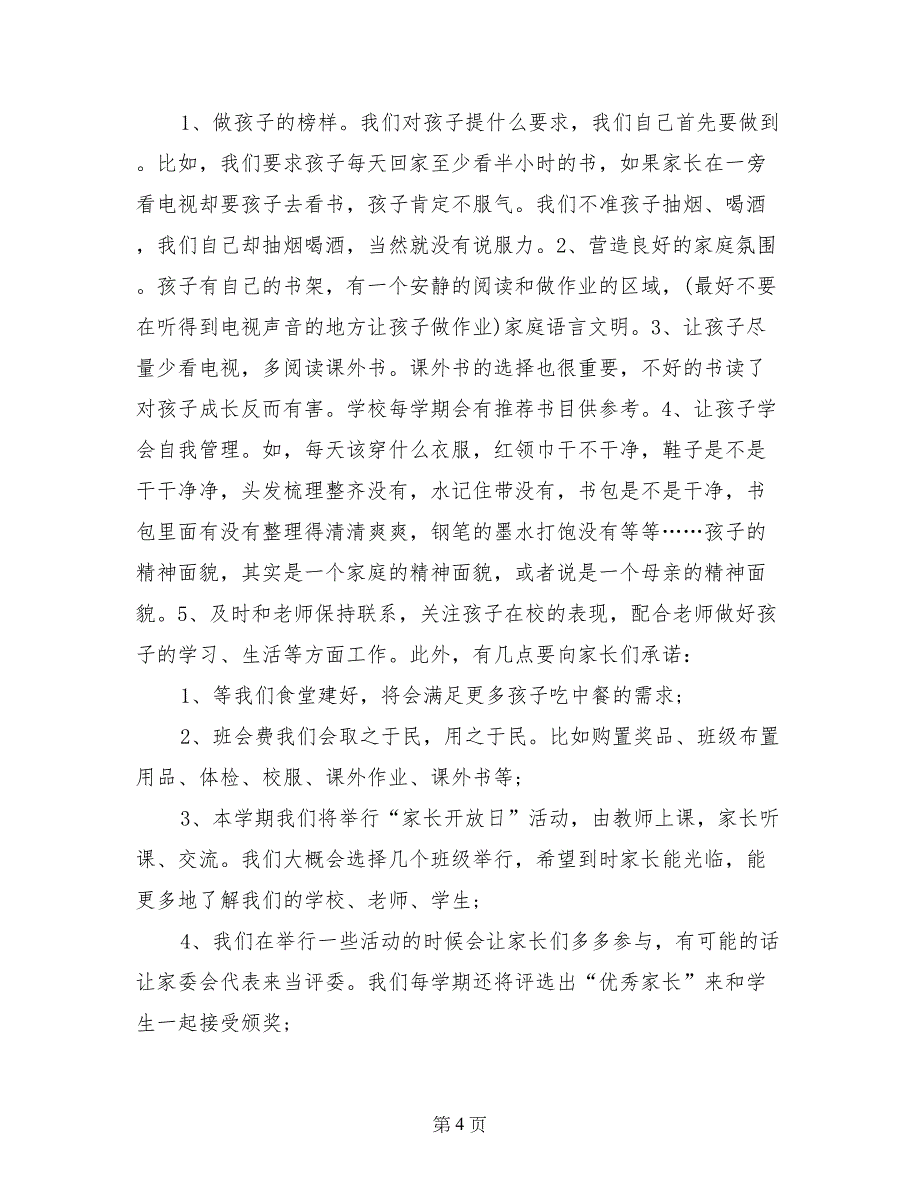 1、做孩子的榜样。我们对孩子提什么要求，我们自己首先要做到
。比如，我们要求孩子每天回家至少看半小时的书，如果家长在一旁
看电视却要孩子去看书，孩子肯定不服气。我们不准孩子抽烟、喝酒
，我们自己却抽烟喝酒，当然就没有说服力。2、营造良好的家庭氛围
。孩子有自己的书架，有一个安静的阅读和做作业的区域，(最好不要
在听得到电视声音的地方让孩子做作业)家庭语言文明。3、让孩子尽
量少看电视，多阅读课外书。课外书的选择也很重要，不好的书读了
对孩子成长反而有害。学校每学期会有推荐书目供参考。4、让孩子学
会自我管理。如，每天该穿什么衣服，红领巾干不干净，鞋子是不是
干干净净，头发梳理整齐没有，水记住带没有，书包是不是干净，书
包里面有没有整理得清清爽爽，钢笔的墨水打饱没有等等……孩子的
精神面貌，其实是一个家庭的精神面貌，或者说是一个母亲的精神面
貌。5、及时和老师保持联系，关注孩子在校的表现，配合老师做好孩
子的学习、生活等方面工作。此外，有几点要向家长们承诺：
1、等我们食堂建好，将会满足更多孩子吃中餐的需求;
2、班会费我们会取之于民，用之于民。比如购置奖品、班级布置
用品、体检、校服、课外作业、课外书等;
3、本学期我们将举行“家长开放日”活动，由教师上课，家长听
课、交流。我们大概会选择几个班级举行，希望到时家长能光临，能
更多地了解我们的学校、老师、学生;
4、我们在举行一些活动的时候会让家长们多多参与，有可能的话
让家委会代表来当评委。我们每学期还将评选出“优秀家长”来和学
生一起接受颁奖;
第 4 页